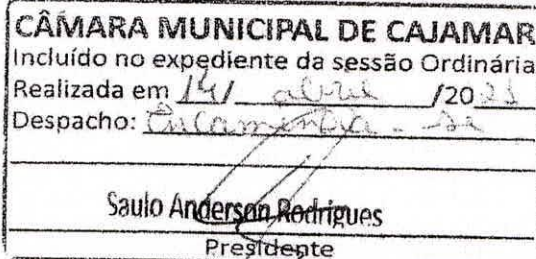 CÂMARA MUNICIPAL DE CAJAMAR
Incluído no expediente da sessão Ordinária
Realizada em 14/ abril /20
Despacho: Encaminha-se
Saulo Anderson Rodrigues
Presidente